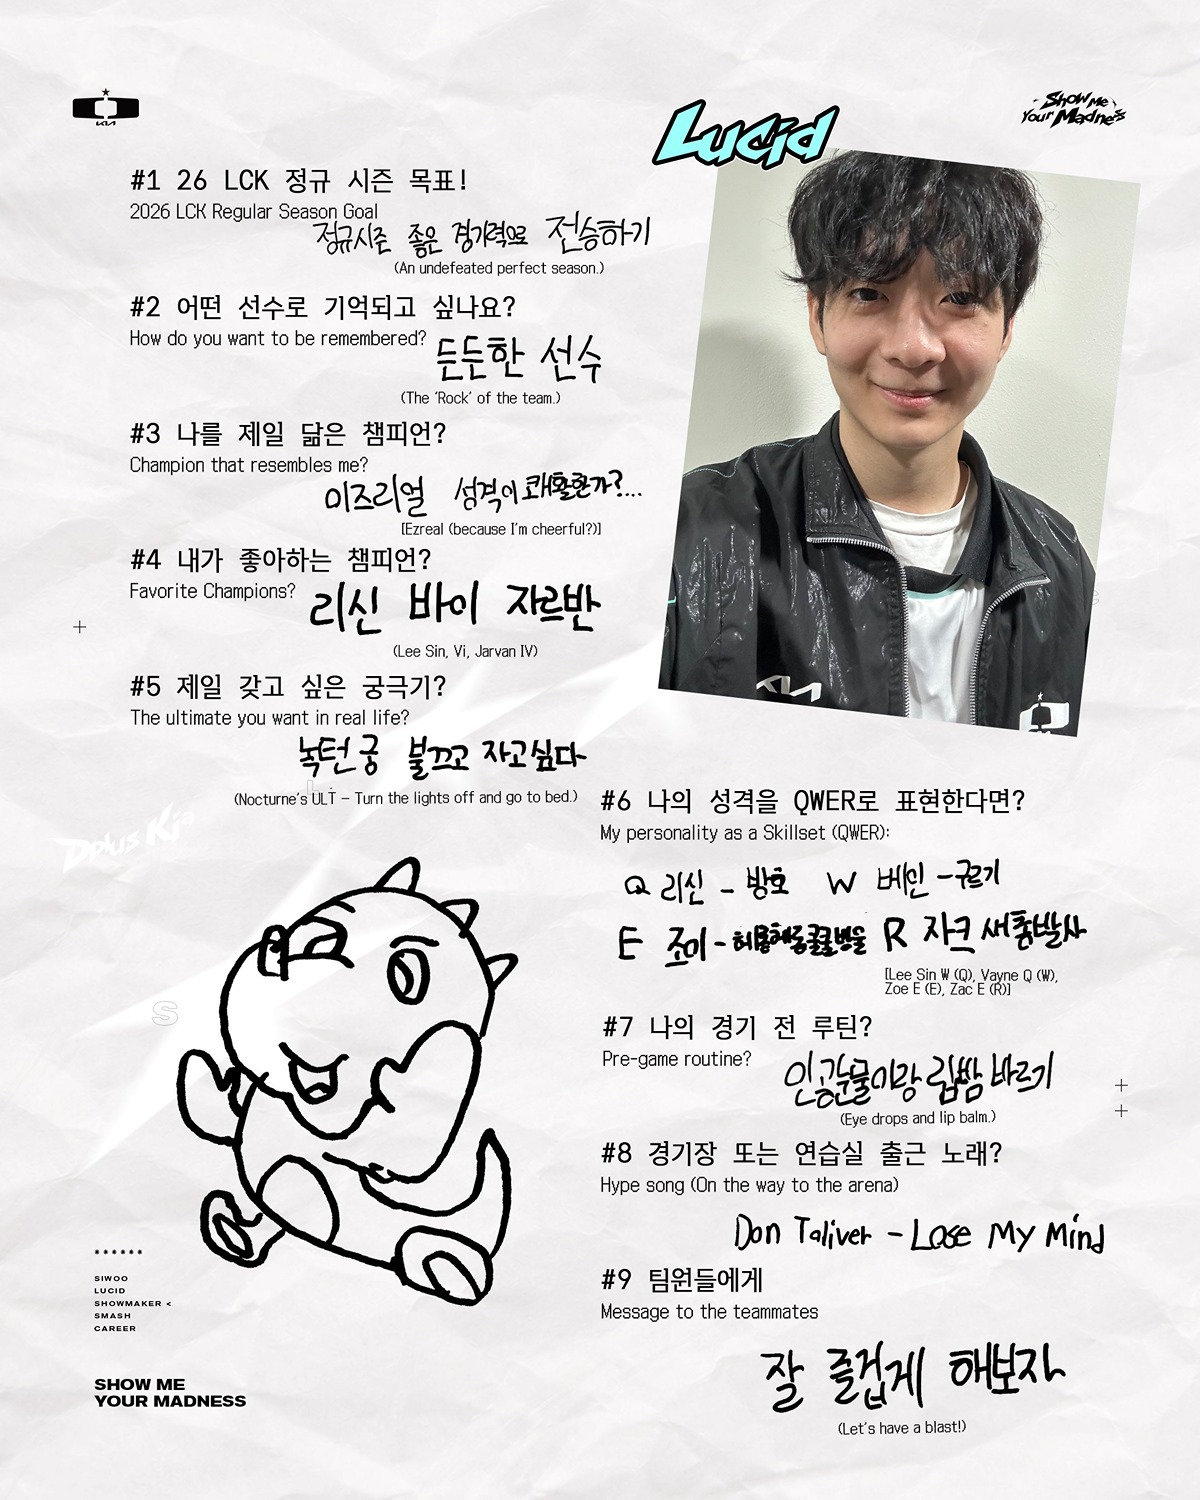 Lucid
Show Me
Your Madness
#1 26 LCK 정규 시즌 목표!
2026 LCK Regular Season Goal
정규시즌 좋은 경기력으로 전승하기
(An undefeated perfect season.)
#2 어떤 선수로 기억되고 싶나요?
How do you want to be remembered?
든든한 선수
(The 'Rock' of the team.)
#3 나를 제일 닮은 챔피언?
Champion that resembles me?
이즈리얼 성격이 쾌활한가?...
[Ezreal (because I'm cheerful?)]
#4 내가 좋아하는 챔피언?
Favorite Champions?
리신 바이 자르반
(Lee Sin, Vi, Jarvan IV)
#5 제일 갖고 싶은 궁극기?
The ultimate you want in real life?
녹턴 궁 불끄고 자고싶다
(Nocturne's ULT – Turn the lights off and go to bed.)
KIA
Dplus Kia
S
#6 나의 성격을 QWER로 표현한다면?
My personality as a Skillset (QWER):
Q 리신 - 방호 W 베인 - 구르기
E 조이 - R 자크 새총발사
[Lee Sin W (Q), Vayne Q (W),
Zoe E (E), Zac E (R)]
#7 나의 경기 전 루틴?
Pre-game routine?
인공눈물이랑 립밤 바르기
(Eye drops and lip balm.)
#8 경기장 또는 연습실 출근 노래?
Hype song (On the way to the arena)
Don Toliver - Lose My Mind
#9 팀원들에게
Message to the teammates
잘 즐겁게 해보자
(Let's have a blast!)
******
SIWOO
LUCID
SHOWMAKER <
SMASH
CAREER
SHOW ME
YOUR MADNESS